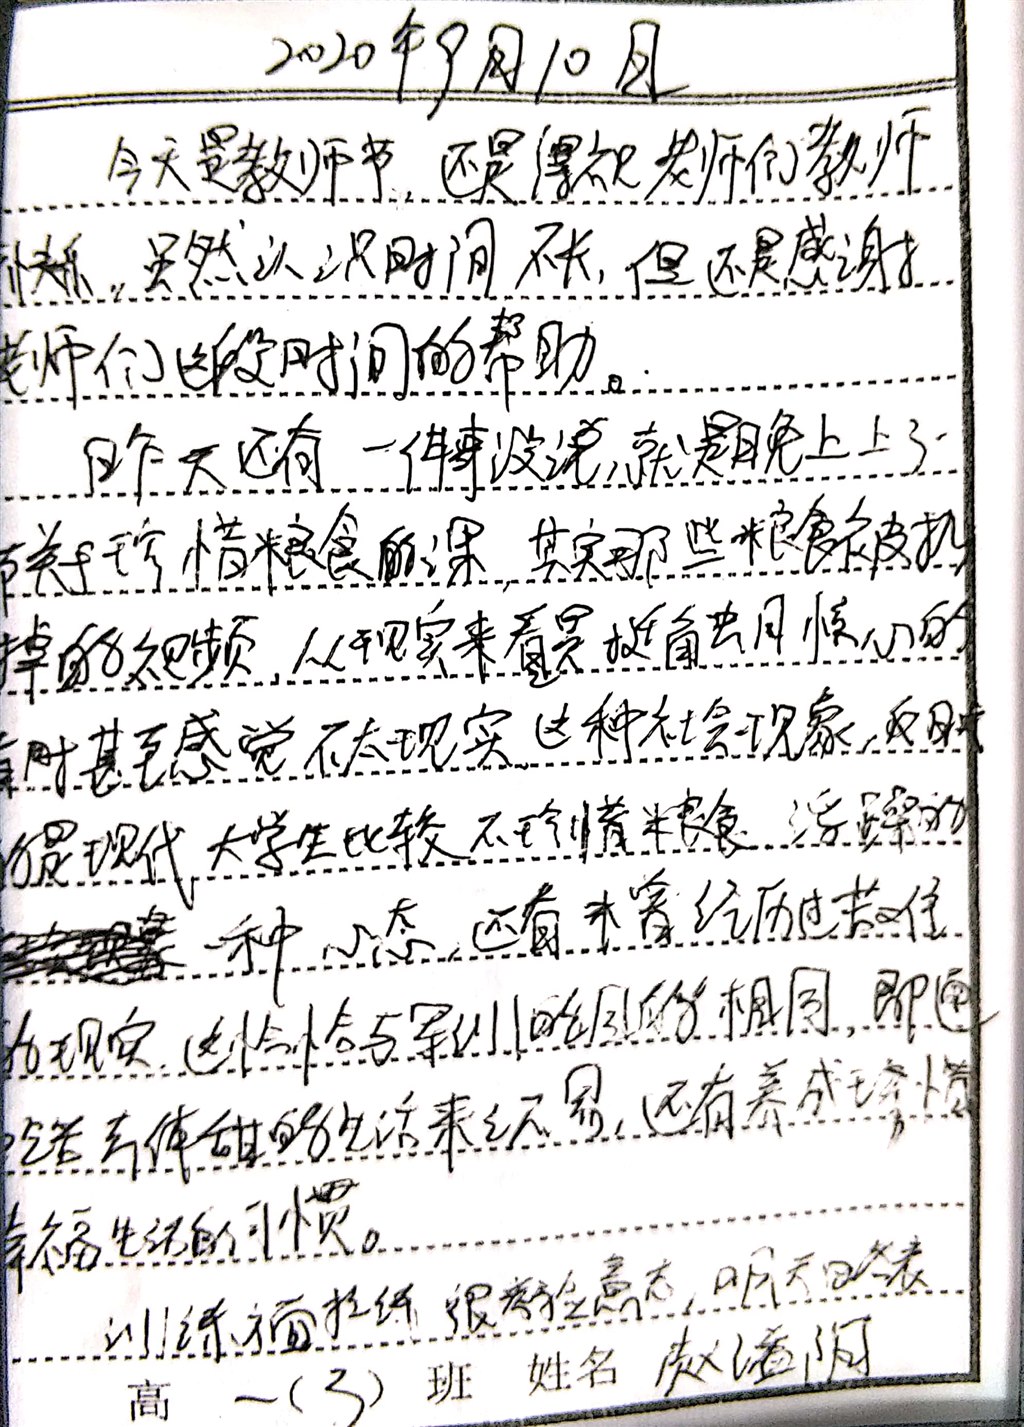 2020年9月10日
今天是教师节,还是得祝老师们教师
节快乐。虽然认识时间不长,但还是感谢
老师们这段时间的帮助。
昨天还有一件事没说,就是晚上上了
节关于珍惜粮食的课,其实那些粮食被扔
掉的视频,从现实来看是挺触目惊心的
有时甚至感觉不太现实 这种社会现象,反映
的是现代大学生比较不珍惜粮食 浮躁的
一种心态,还有未曾经历过苦
的现实,这恰恰与军训的目的相同,即通
吃苦去体甜的生活来之不易,还有养成珍惜
幸福生活的习惯。
训练方面拉练很考验意志,明天
高一(3)班 姓名 赵